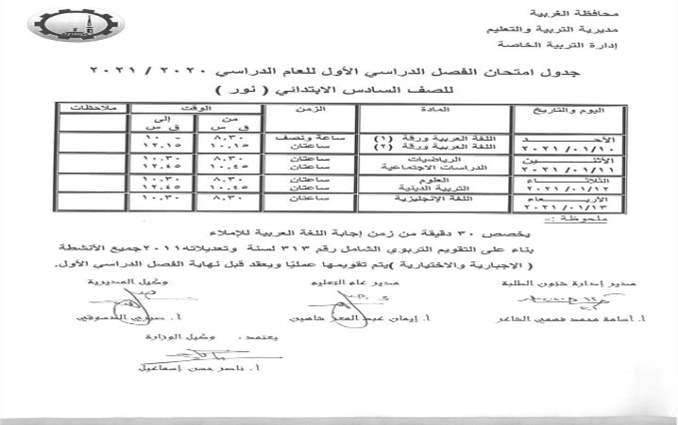 محافظة الغربية
مديرية التربية والتعليم
إدارة التربية الخاصة
جدول امتحان الفصل الدراسي الأول للعام الدراسي ٢٠٢٠ / ٢٠٢١
للصف السادس الابتدائي ( نور )
اليوم والتاريخ المادة الزمن الوقت ملاحظات
من إلى
ق س ق س
الأحد ٢٠٢١/٠١/١٠ اللغة العربية ورقة (١) ساعة ونصف ٨,٣٠ ١٠ -
اللغة العربية ورقة (٢) ساعتان ١٠,١٥ ١٢,١٥
الأثنين ٢٠٢١/٠١/١١ الرياضيات ساعتان ٨,٣٠ ١٠,٣٠
الدراسات الاجتماعية ساعتان ١٠,٤٥ ١٢,٤٥
الثلاثاء ٢٠٢١/٠١/١٢ العلوم ساعتان ٨,٣٠ ١٠,٣٠
التربية الدينية ساعتان ١٠,٤٥ ١٢,٤٥
الأربعاء ٢٠٢١/٠١/١٣ اللغة الإنجليزية ساعتان ٨,٣٠ ١٠,٣٠
ملحوظة :-
يخصص ٣٠ دقيقة من زمن إجابة اللغة العربية للإملاء
بناء على التقويم التربوي الشامل رقم ٣١٣ لسنة وتعديلاته٢٠١١جميع الأنشطة
( الاجبارية والاختيارية )يتم تقويمها عمليا ويعقد قبل نهاية الفصل الدراسي الأول.
مدير إدارة شئون الطلبة مدير عام التعليم وكيل المديرية
أ. أسامة محمد فهمي الشاعر أ. إيمان عبد المعز شاهين أ. الدسوقي
يعتمد، وكيل الوزارة
أ. ناصر حسن إسماعيل